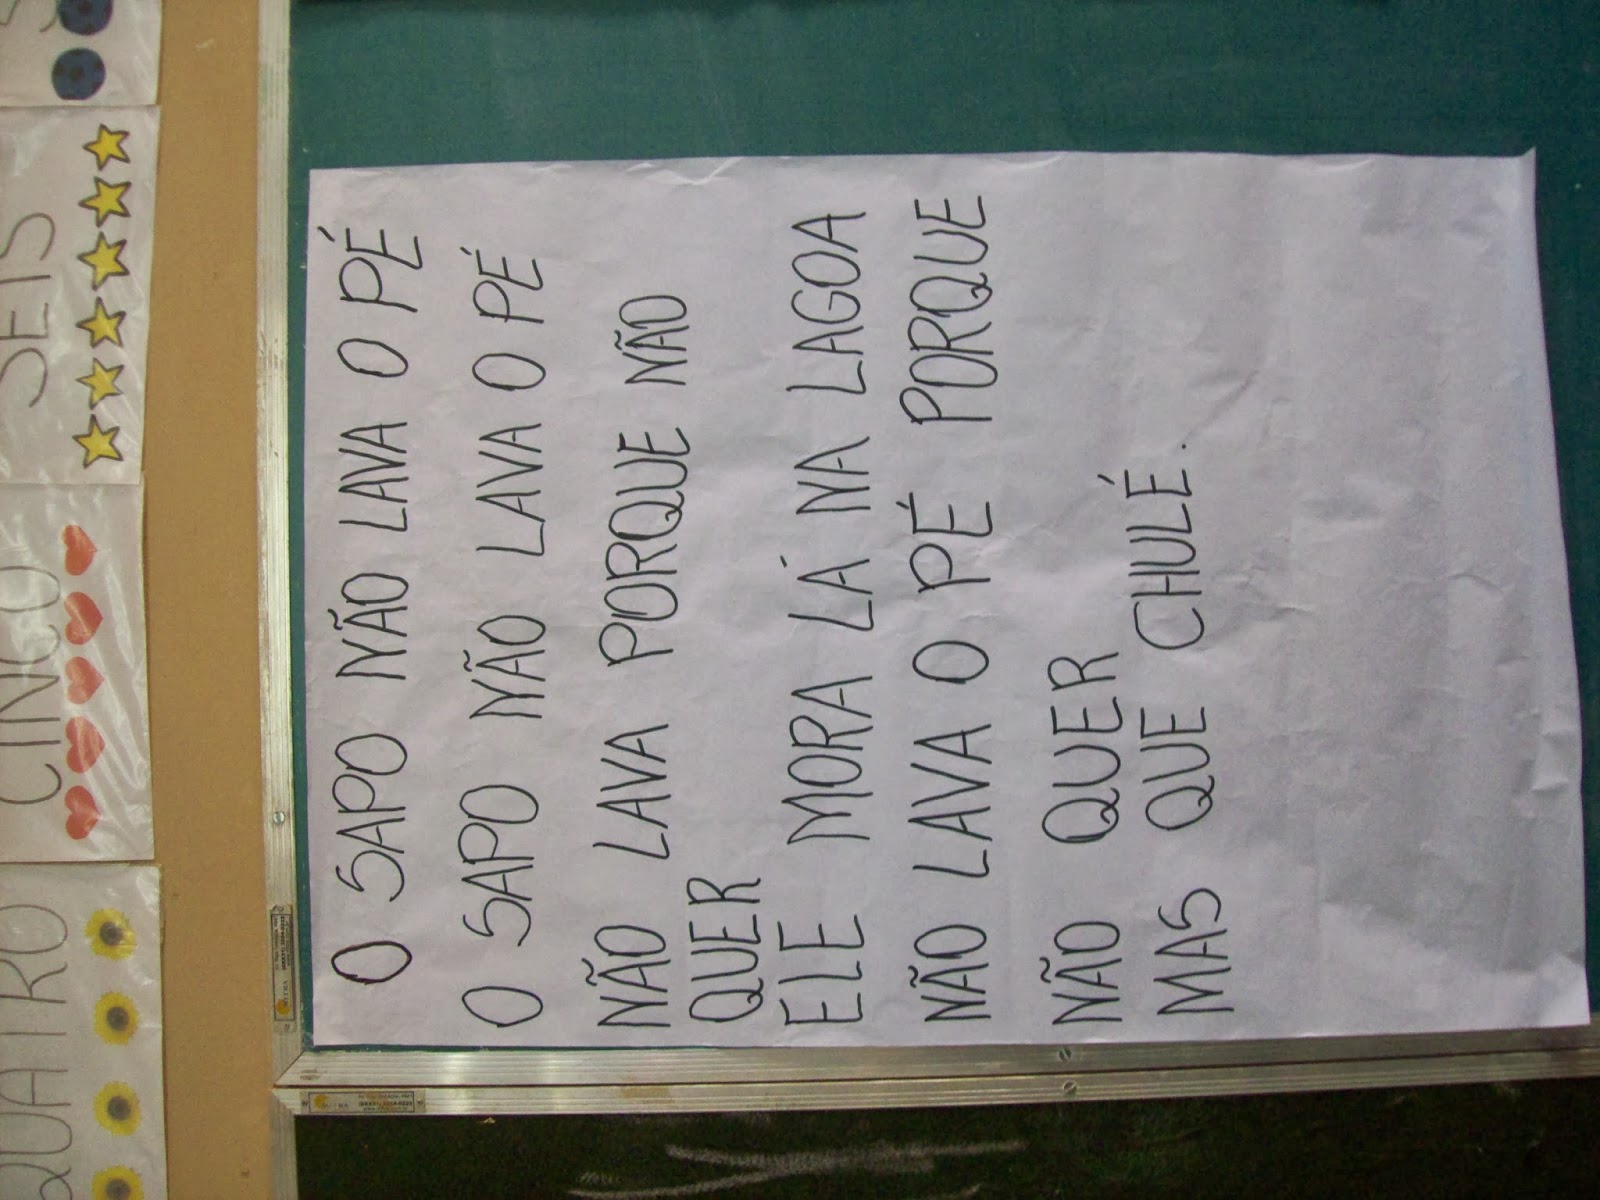 QUATRO
CINCO
SEIS
O SAPO NÃO LAVA O PÉ
O SAPO NÃO LAVA O PÉ
NÃO LAVA PORQUE NÃO
QUER
ELE MORA LÁ NA LAGOA
NÃO LAVA O PÉ PORQUE
NÃO QUER
MAS QUE CHULÉ.